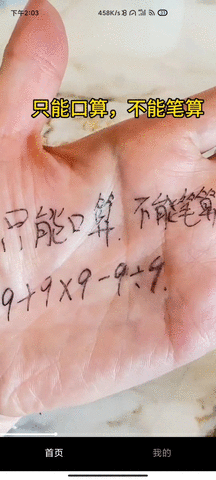 下午2:03
458K/s
只能口算，不能笔算
只能口算. 不能笔算
9+9×9-9÷9.
首页
我的